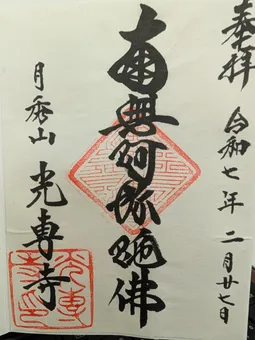 奉拝 令和七年 二月廿七日
南無阿弥陀佛
月秀山 光専寺
光専寺印